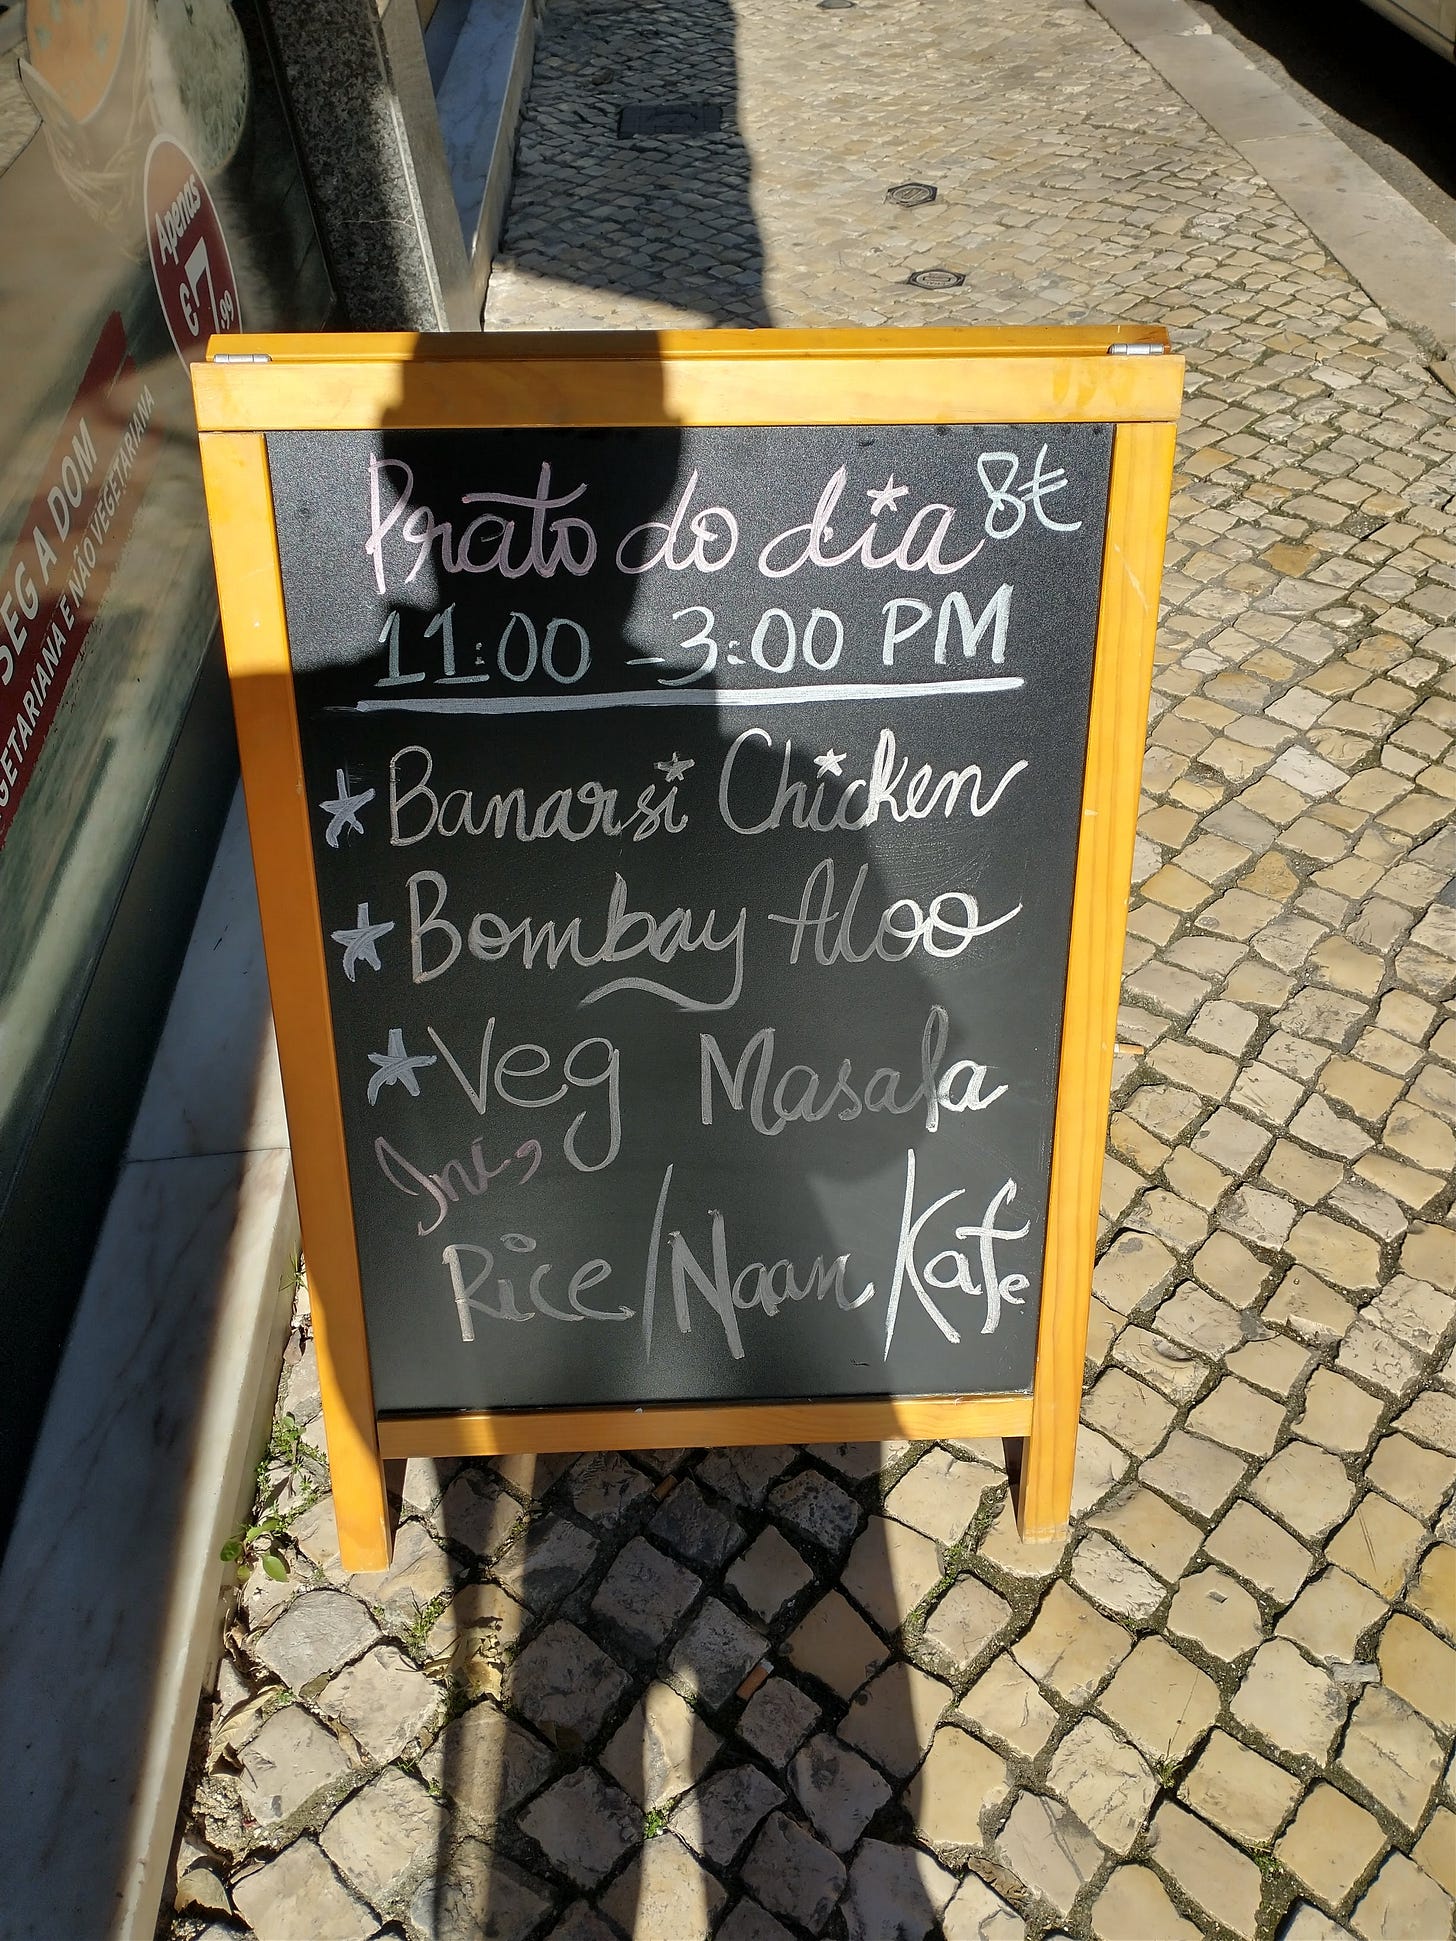 Apenas
€7,99
SEG A DOM
VEGETARIANA E NÃO VEGETARIANA
Prato do dia 8€
11:00 - 3:00 PM
Banarsi Chicken
Bombay Aloo
Veg Masala
Inc,
Rice/Naan/Kafe